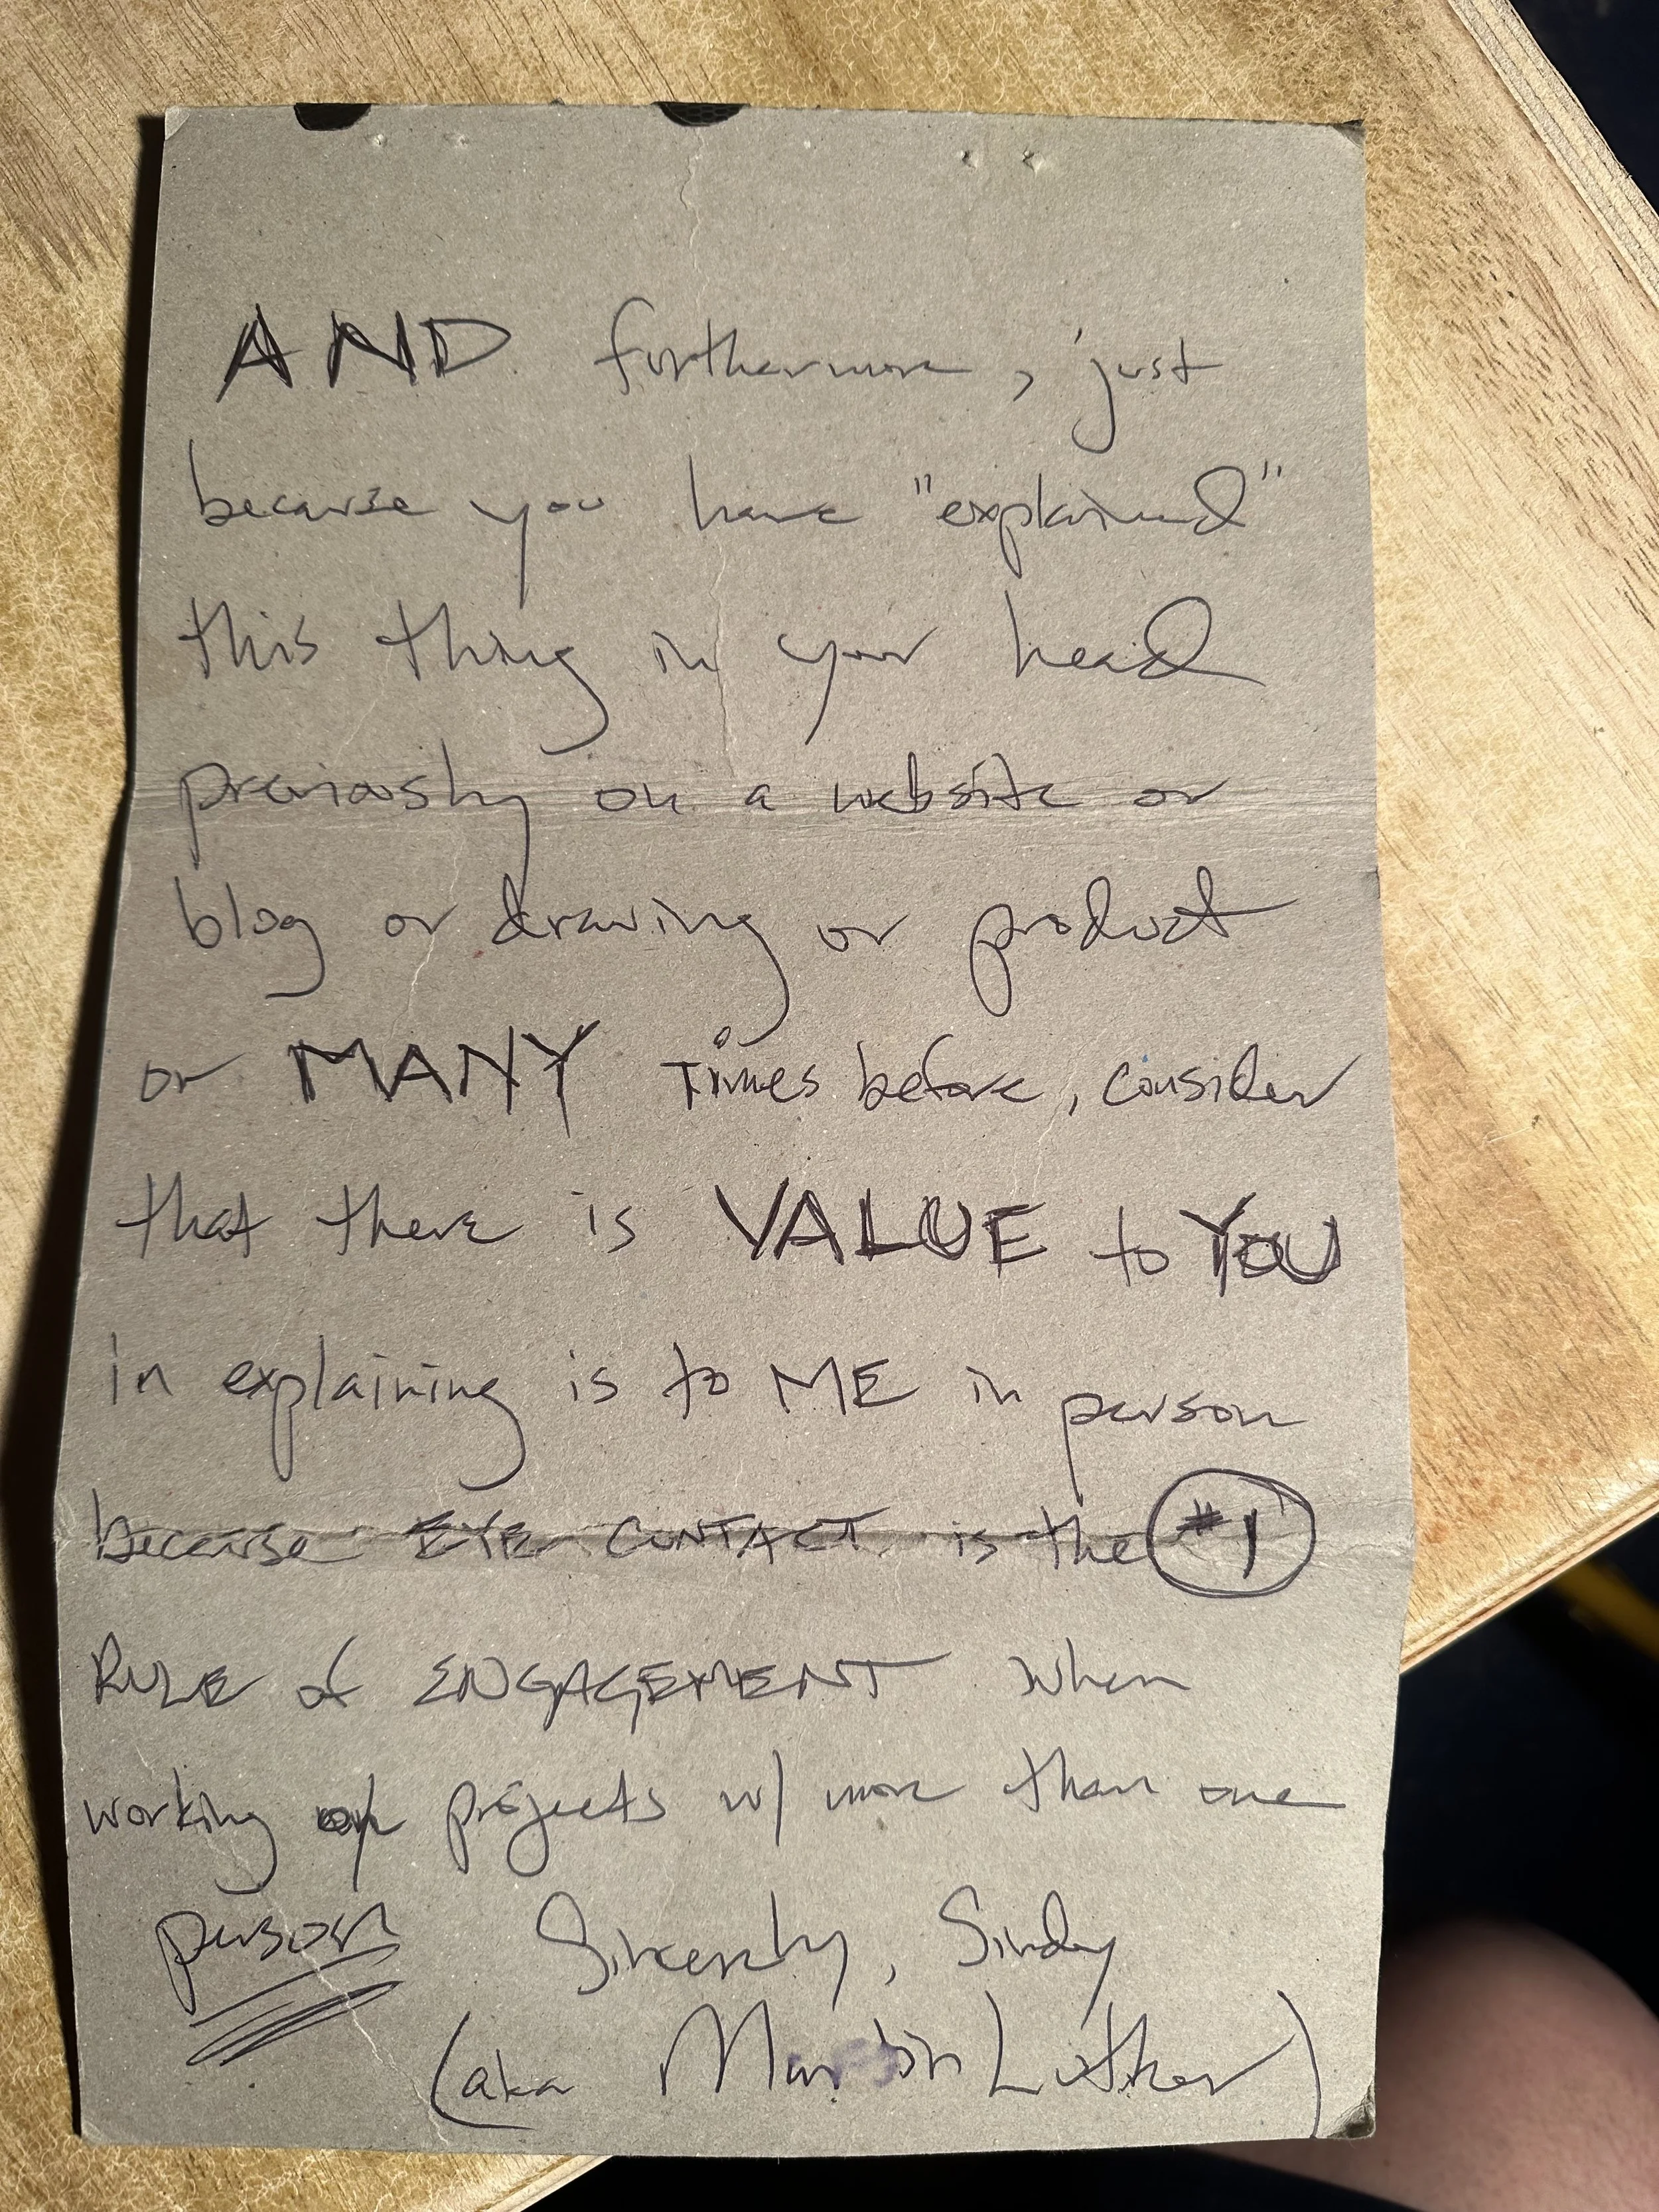 AND furthermore, just
because you have "explained"
this thing in your head
previously on a website or
blog or drawing or product
or MANY Times before, consider
that there is VALUE to YOU
in explaining is to ME in person
because EYE CONTACT is the #1
RULE of ENGAGEMENT when
working on projects w/ more than one
person Sincerely, Sindy
(aka Martin Luther)